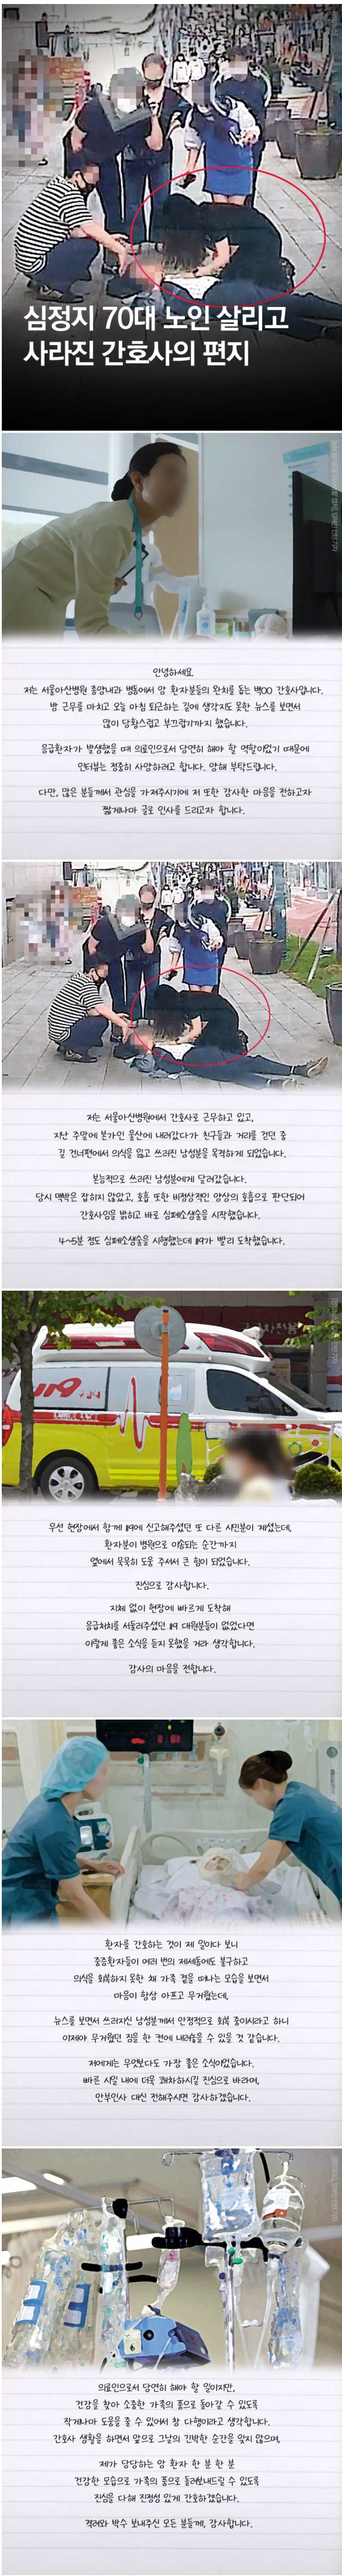 심정지 70대 노인 살리고
사라진 간호사의 편지
안녕하세요.
저는 서울아산병원 종양내과 병동에서 암 환자분들의 완치를 돕는 백OO 간호사입니다.
밤 근무를 마치고 오늘 아침 퇴근하는 길에 생각지도 못한 뉴스를 보면서
많이 당황스럽고 부끄럽기까지 했습니다.
응급환자가 발생했을 때 의료인으로서 당연히 해야 할 역할이었기 때문에
인터뷰는 정중히 사양하려고 합니다. 양해 부탁드립니다.
다만, 많은 분들께서 관심을 가져주시기에 저 또한 감사한 마음을 전하고자
짧게나마 글로 인사를 드리고자 합니다.
저는 서울아산병원에서 간호사로 근무하고 있고,
지난 주말에 본가인 울산에 내려갔다가 친구들과 거리를 걷던 중
길 건너편에서 의식을 잃고 쓰러진 남성분을 목격하게 되었습니다.
본능적으로 쓰러진 남성분에게 달려갔습니다.
당시 맥박은 잡히지 않았고, 호흡 또한 비정상적인 양상의 호흡으로 판단되어
간호사임을 밝히고 바로 심폐소생술을 시작했습니다.
4~5분 정도 심폐소생술을 시행했는데 119가 빨리 도착했습니다.
119
우선 현장에서 함께 119에 신고해주셨던 또 다른 시민분이 계셨는데,
환자분이 병원으로 이송되는 순간까지
옆에서 묵묵히 도움 주셔서 큰 힘이 되었습니다.
진심으로 감사합니다.
지체 없이 현장에 빠르게 도착해
응급처치를 서둘러주셨던 119 대원분들이 없었다면
이렇게 좋은 소식을 듣지 못했을 거라 생각합니다.
감사의 마음을 전합니다.
환자를 간호하는 것이 제 일이다 보니
중증환자들이 여러 번의 제세동에도 불구하고
의식을 회복하지 못한 채 가족 곁을 떠나는 모습을 보면서
마음이 항상 아프고 무거웠는데,
뉴스를 보면서 쓰러지신 남성분께서 안정적으로 회복 중이시라고 하니
이제야 무거웠던 짐을 한 편에 내려놓을 수 있을 것 같습니다.
저에게는 무엇보다도 가장 좋은 소식이었습니다.
빠른 시일 내에 더욱 쾌차하시길 진심으로 바라며,
안부인사 대신 전해주시면 감사하겠습니다.
의료인으로서 당연히 해야 할 일이지만,
건강을 찾아 소중한 가족의 품으로 돌아갈 수 있도록
작게나마 도움을 줄 수 있어서 참 다행이라고 생각합니다.
간호사 생활을 하면서 앞으로 그날의 긴박한 순간을 잊지 않으며,
제가 담당하는 암 환자 한 분 한 분
건강한 모습으로 가족의 품으로 돌려보내드릴 수 있도록
진심을 다해 진정성 있게 간호하겠습니다.
격려와 박수 보내주신 모든 분들께, 감사합니다.